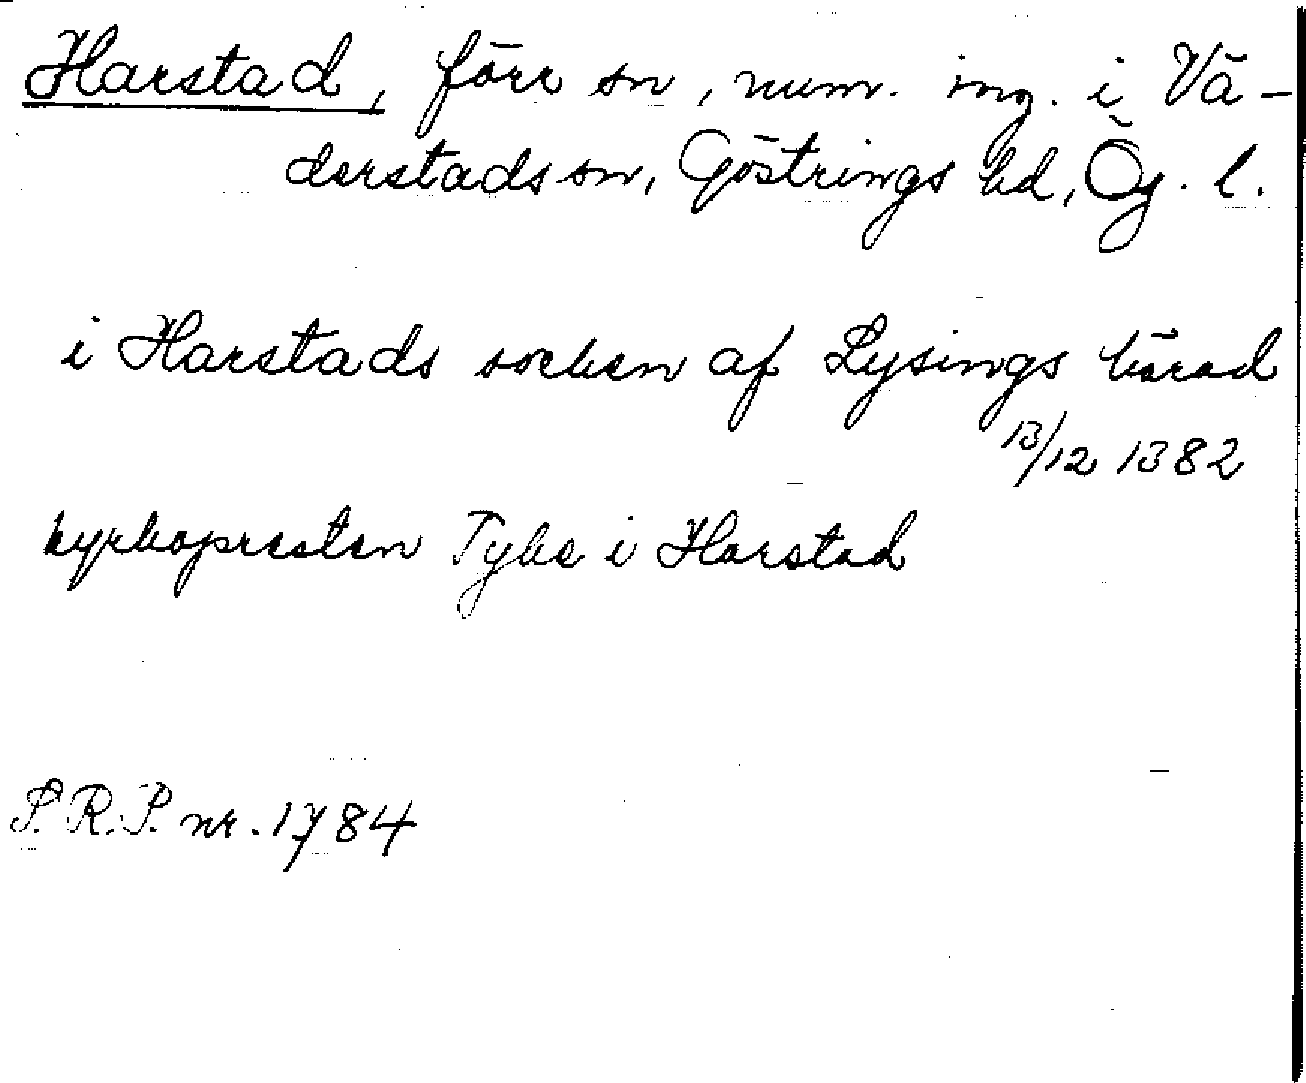 Harstad, förr sn, num. ing. i Vä-
derstads sn, Göstrings hd, Ög. l.
i Harstads socken af Lysings härad
13/12 1382
kyrkopresten Tyke i Harstad
S.R.P. nr. 1784